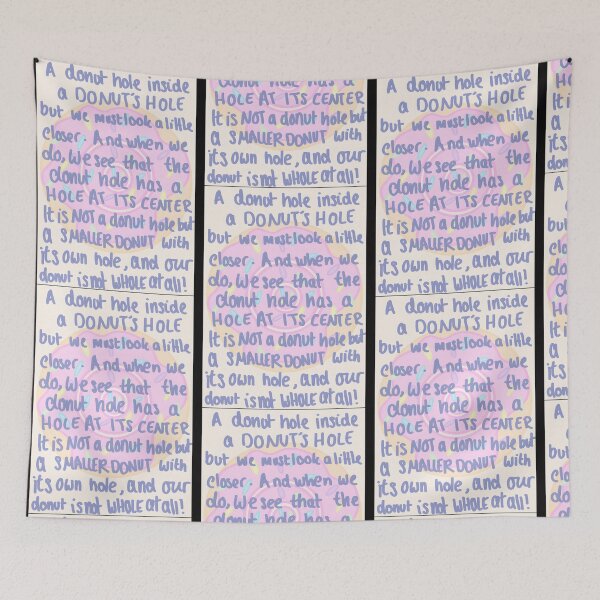 A donut hole inside
a DONUT'S HOLE
but we must look a little
closer. And when we
do, we see that the
donut hole has a
HOLE AT ITS CENTER
It is NOT a donut hole but
a SMALLER DONUT with
its own hole, and our
donut is not WHOLE at all!
A donut hole inside
a DONUT'S HOLE
but we must look a little
closer. And when we
do, we see that the
donut hole has a
HOLE AT ITS CENTER
It is NOT a donut hole but
a SMALLER DONUT with
its own hole, and our
donut is not WHOLE at all!
donut hole has a
HOLE AT ITS CENTER
It is NOT a donut hole but
a SMALLER DONUT with
its own hole, and our
donut is not WHOLE at all!
A donut hole inside
a DONUT'S HOLE
but we must look a little
closer. And when we
do, we see that the
donut hole has a
HOLE AT ITS CENTER
It is NOT a donut hole but
a SMALLER DONUT with
its own hole, and our
donut is not WHOLE at all!
A donut hole inside
a DONUT'S HOLE
but we must look a little
closer. And when we
do, we see that the
donut hole has a
A donut hole inside
a DONUT'S HOLE
but we must look a little
closer. And when we
do, we see that the
donut hole has a
HOLE AT ITS CENTER
It is NOT a donut hole but
a SMALLER DONUT with
its own hole, and our
donut is not WHOLE at all!
A donut hole inside
a DONUT'S HOLE
but we must look a little
closer. And when we
do, we see that the
donut hole has a
HOLE AT ITS CENTER
It is NOT a donut hole but
a SMALLER DONUT with
its own hole, and our
donut is not WHOLE at all!